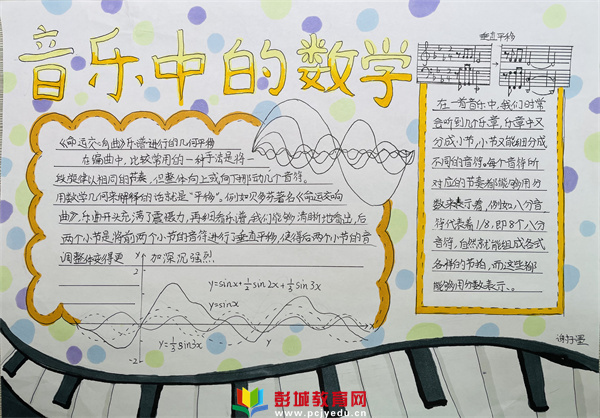 音乐中的数学
垂直平移
《命运交响曲》乐谱进行的几何平移
在编曲中，比较常用的一种手法是将
一段旋律以相同的节奏，但整体向上或向下移动几个音符。
用数学几何来解释的话就是“平移”。例如贝多芬著名《命运交响
曲》，乐曲开头充满了震撼力，再利用乐谱，我们能够清晰地看出，后
两个小节是将前两个小节的音符进行了垂直平移，使得后两个小节的音
调整体变得更加深沉强烈.
y=sinx+½sin2x+⅓sin3x
y=sinx
y=⅓sin3x
y
x
2
-2
在一首音乐中，我们时常
会听到几乐章，乐章中又
分成小节，小节又能组分成
不同的音符。每个音符所
对应的节奏都能够用分
数来表示着，例如八分音
符代表着1/8，即8个八分
音符，自然就能组成各式
各样的节拍，而这些都
能够用分数表示、。
彭城教育网
www.pcjyedu.cn